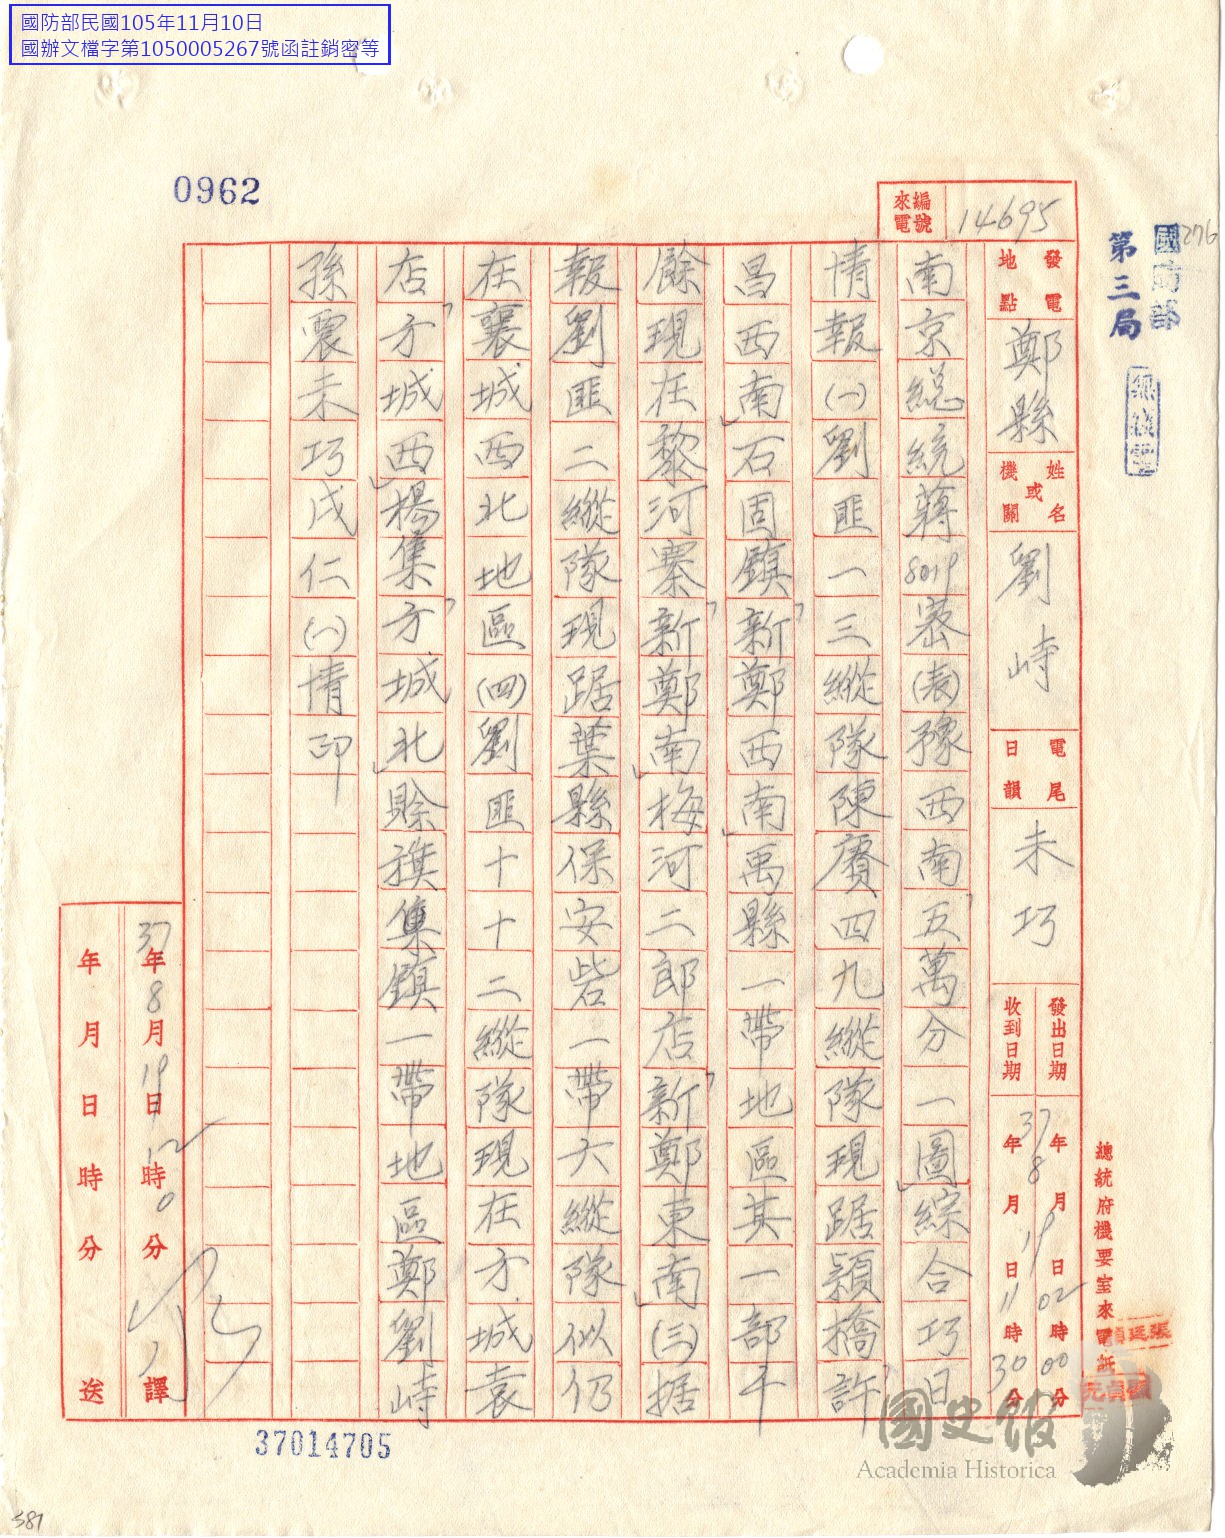 國防部民國105年11月10日
國辦文檔字第1050005267號函註銷密等
0962
276
國防部
第三局
無線電
總統府機要室來電紙
來電編號
14695
發電地點
鄭縣
姓名或機關
劉峙
電尾日韻
未巧
發出日期
37年8月19日02時00分
收到日期
年月日11時30分
南京總統蔣8019密(表)豫西南五萬分一圖綜合巧日
情報(一)劉匪一三縱隊陳賡四九縱隊現踞潁橋許
昌西南石固鎮新鄭西南禹縣一帶地區其一部千
餘現在黎河寨新鄭南梅河二郎店新鄭東南(三)据
報劉匪二縱隊現踞葉縣保安砦一帶六縱隊似仍
在襄城西北地區(四)劉匪十十二縱隊現在方城袁
店方城西楊集方城北賒旗集鎮一帶地區鄭劉峙
孫震未巧戌仁(一)情印
37年8月19日12時0分譯
年月日時分送
37014705
國史館
Academia Historica
381